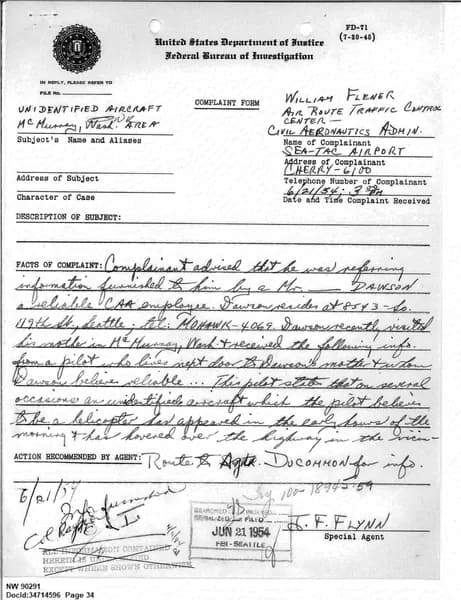 FD-71
(7-20-48)
United States Department of Justice
Federal Bureau of Investigation
IN REPLY, PLEASE REFER TO
FILE No.
UNIDENTIFIED AIRCRAFT
McMurray, Wash. AREA
Subject's Name and Aliases
Address of Subject
Character of Case
COMPLAINT FORM
WILLIAM FLENER
AIR ROUTE TRAFFIC CONTROL
CENTER —
CIVIL AERONAUTICS ADMIN.
Name of Complainant
SEA-TAC AIRPORT
Address of Complainant
CHERRY-6100
Telephone Number of Complainant
6/21/54; 3 PM
Date and Time Complaint Received
DESCRIPTION OF SUBJECT:
FACTS OF COMPLAINT: Complainant advised that he was referring
information furnished to him by a Mr. DAWSON
a reliable CAA employee. Dawson resides at 8543-So.
119th St., Seattle; tel: MOHAWK-4069. Dawson recently visited
his mother in McMurray, Wash & received the following info.
from a pilot who lives next door to Dawson's mother & whom
Dawson believes reliable ... This pilot states that on several
occasions an unidentified aircraft which the pilot believes
to be a helicopter has appeared in the early hours of the
morning & has hovered over the highway in the
ACTION RECOMMENDED BY AGENT: Route to DUCOMMON for info.
6/21/54
Info furnished
J. F. FLYNN
Special Agent
SEARCHED
SERIALIZED FILED
JUN 21 1954
FBI - SEATTLE
ALL INFORMATION CONTAINED
HEREIN IS
EXCEPT WHERE SHOWN OTHERWISE
NW 90291
DocId:34714596 Page 34